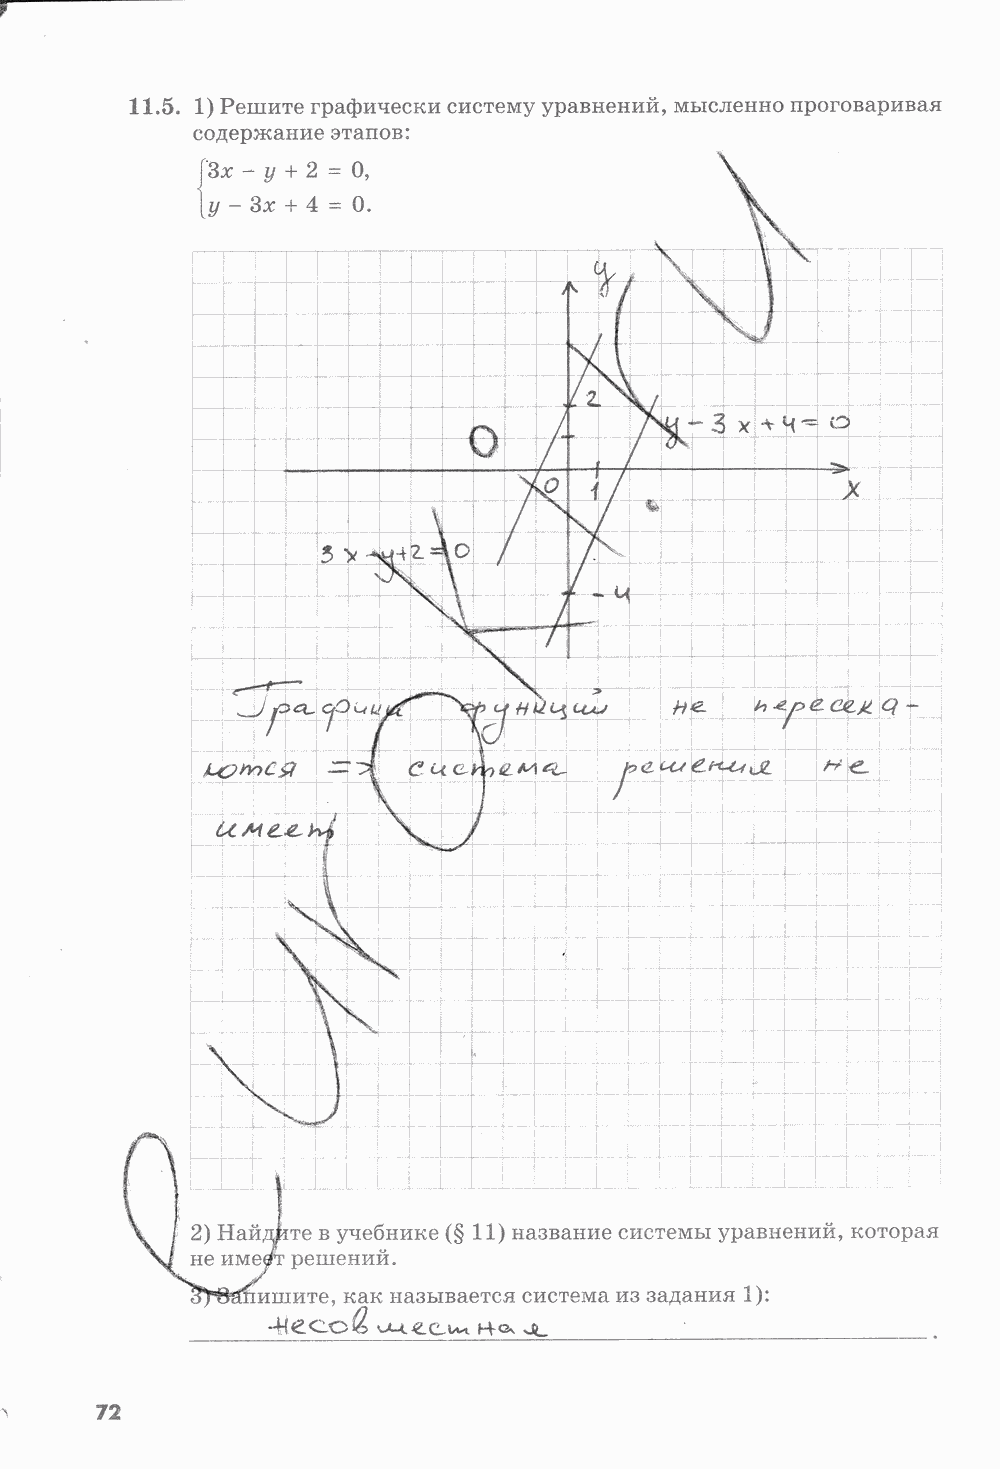 11.5. 1) Решите графически систему уравнений, мысленно проговаривая
содержание этапов:
3x − y + 2 = 0,
y − 3x + 4 = 0.
y
2
y − 3x + 4 = 0
0
1
x
3x − y + 2 = 0
− 4
Графики функций не пересека-
ются => система решения не
имеет
2) Найдите в учебнике (§ 11) название системы уравнений, которая
не имеет решений.
3) Запишите, как называется система из задания 1):
несовместная.
72